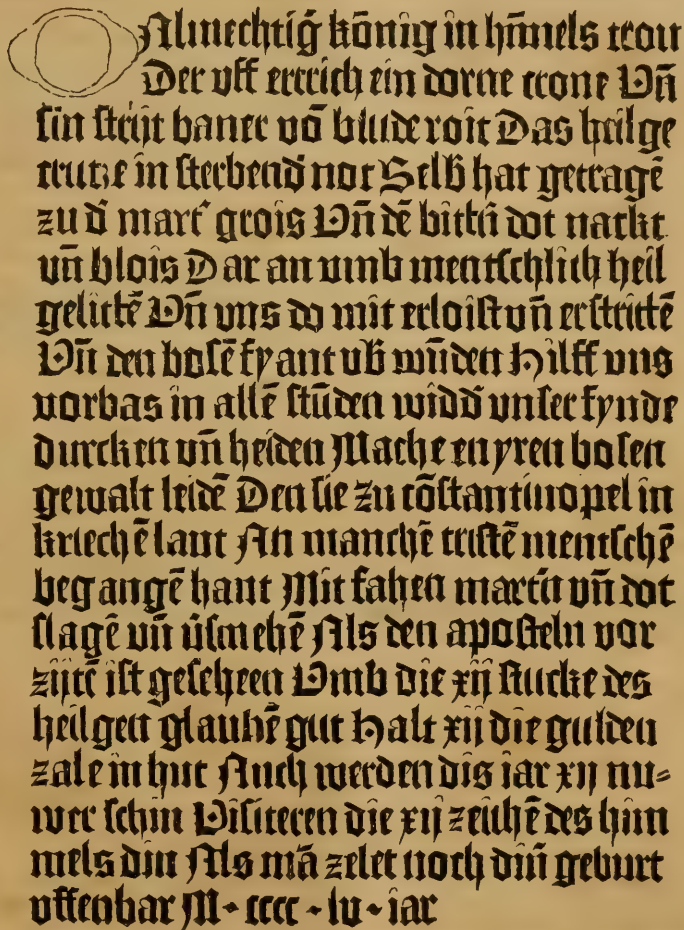 Almechtig̃ kõnig in hm̃els tron
Der uff ertrich ein dorne crone Vñ
sin strijt baner võ blude roit Das heilge
crutze in sterbend̃ not Selb hat getragẽ
zu d̃ mart̃ grois Vñ dẽ bittñ dot nackt
uñ blois Dar an umb mentschlich heil
gelittẽ Vñ uns do mit erloist uñ erstrittẽ
Vñ den bosẽ fyant ub̃ wũden Hilff uns
vorbas in allẽ stũden widd̃ unser fynde
durcken uñ heiden Mache en yren bosen
gewalt leidẽ Den sie zu cõstantinopel in
kriechẽ lant An manchẽ cristẽ mentschẽ
begangẽ hant Mit fahen martñ uñ dot
slagẽ uñ ũsmehẽ Als den aposteln vor
zijtẽ ist gescheen Vmb die xij stucke des
heilgen glaubẽ gut Halt xij die gulden
zale in hut Auch werden dis iar xij nu=
wer schin Visiteren die xij zeichẽ des him
mels din Als mã zelet noch din̄ geburt
uffenbar M · cccc · lv · iar